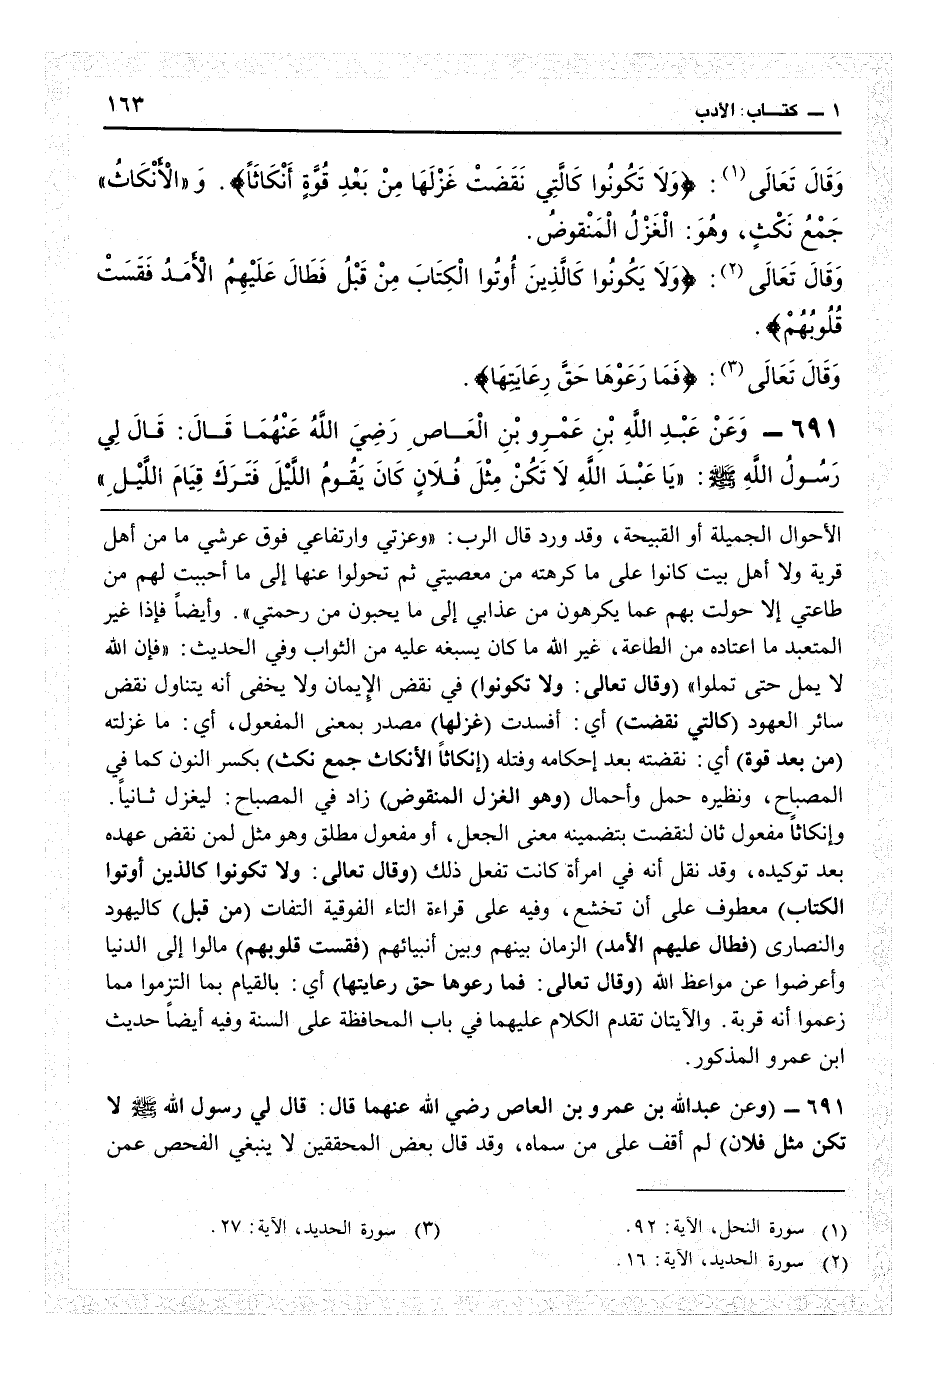 ١ ـ كتـاب: الأدب ١٦٣
وَقَالَ تَعَالَى(١): ﴿وَلَا تَكُونُوا كَالَّتِي نَقَضَتْ غَزْلَهَا مِنْ بَعْدِ قُوَّةٍ أَنْكَاثَاً﴾. وَ «الْأَنْكَاثُ»
جَمْعُ نَكْثٍ، وهُوَ: الْغَزْلُ الْمَنْقوضُ.
وَقَالَ تَعَالَى(٢): ﴿وَلَا يَكُونُوا كَالَّذِينَ أُوتُوا الْكِتَابَ مِنْ قَبْلُ فَطَالَ عَلَيْهِمُ الْأَمَدُ فَقَسَتْ
قُلُوبُهُمْ﴾.
وَقَالَ تَعَالَى(٣): ﴿فَمَا رَعَوْهَا حَقَّ رِعَايَتِهَا﴾.
٦٩١ ـ وَعَنْ عَبْدِ اللَّهِ بْنِ عَمْرِو بْنِ الْعَـاصِ رَضِيَ اللَّهُ عَنْهُمَا قَـالَ: قَـالَ لِي
رَسُولُ اللَّهِ ﷺ: «يَا عَبْدَ اللَّهِ لَا تَكُنْ مِثْلَ فُـلَانٍ كَانَ يَقُومُ اللَّيْلَ فَتَرَكَ قِيَامَ اللَّيْلِ»
الأحوال الجميلة أو القبيحة، وقد ورد قال الرب: «وعزتي وارتفاعي فوق عرشي ما من أهل
قرية ولا أهل بيت كانوا على ما كرهته من معصيتي ثم تحولوا عنها إلى ما أحببت لهم من
طاعتي إلا حولت بهم عما يكرهون من عذابي إلى ما يحبون من رحمتي». وأيضاً فإذا غير
المتعبد ما اعتاده من الطاعة، غير الله ما كان يسبغه عليه من الثواب وفي الحديث: «فإن الله
لا يمل حتى تملوا» (وقال تعالى: ولا تكونوا) في نقض الإيمان ولا يخفى أنه يتناول نقض
سائر العهود (كالتي نقضت) أي: أفسدت (غزلها) مصدر بمعنى المفعول، أي: ما غزلته
(من بعد قوة) أي: نقضته بعد إحكامه وفتله (إنكاثاً الأنكاث جمع نكث) بكسر النون كما في
المصباح، ونظيره حمل وأحمال (وهو الغزل المنقوض) زاد في المصباح: ليغزل ثـانيـاً.
وإنكاثاً مفعول ثان لنقضت بتضمينه معنى الجعل، أو مفعول مطلق وهو مثل لمن نقض عهده
بعد توكيده، وقد نقل أنه في امرأة كانت تفعل ذلك (وقال تعالى: ولا تكونوا كالذين أوتوا
الكتاب) معطوف على أن تخشع، وفيه على قراءة التاء الفوقية التفات (من قبل) كاليهود
والنصارى (فطال عليهم الأمد) الزمان بينهم وبين أنبيائهم (فقست قلوبهم) مالوا إلى الدنيا
وأعرضوا عن مواعظ الله (وقال تعالى: فما رعوها حق رعايتها) أي: بالقيام بما التزموا مما
زعموا أنه قربة. والآيتان تقدم الكلام عليهما في باب المحافظة على السنة وفيه أيضاً حديث
ابن عمرو المذكور.
٦٩١ ـ (وعن عبدالله بن عمرو بن العاص رضي الله عنهما قال: قال لي رسول الله ﷺ لا
تكن مثل فلان) لم أقف على من سماه، وقد قال بعض المحققين لا ينبغي الفحص عمن
(١) سورة النحل، الآية: ٩٢. (٣) سورة الحديد، الآية: ٢٧.
(٢) سورة الحديد، الآية: ١٦.